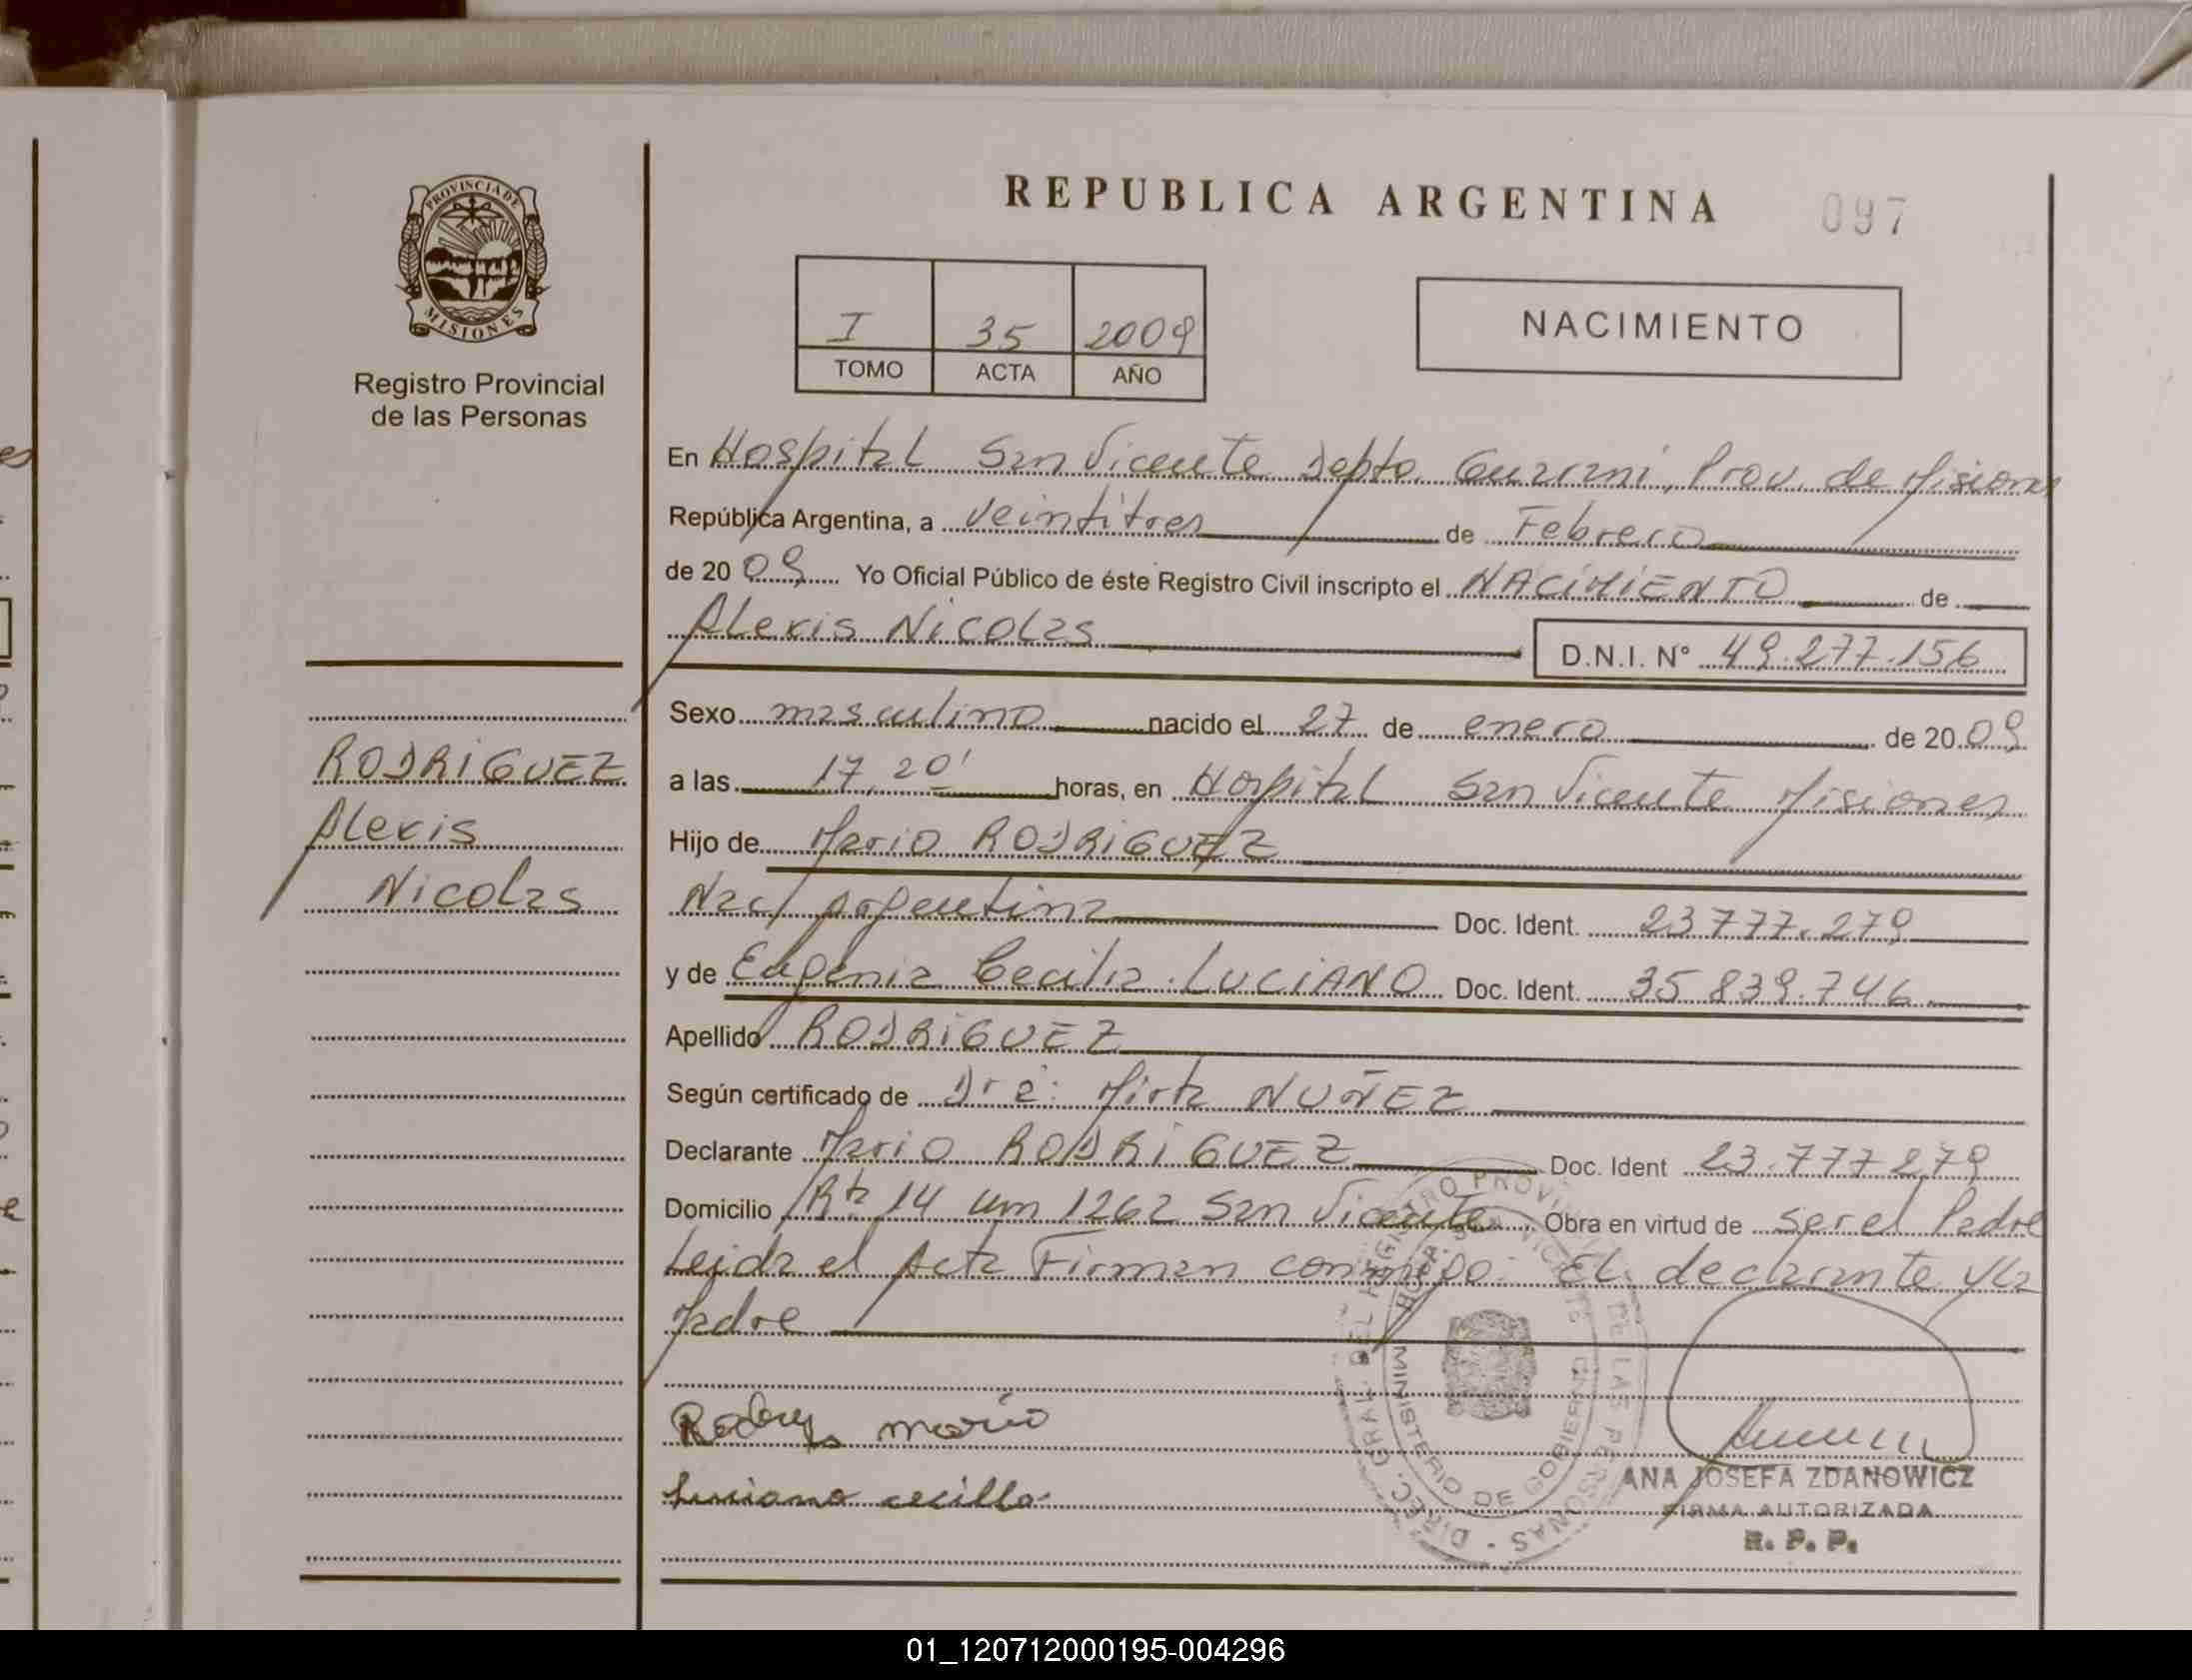 REPUBLICA ARGENTINA 097
PROVINCIA DE
MISIONES
Registro Provincial
de las Personas
I 35 2009
TOMO ACTA AÑO
NACIMIENTO
En Hospital San Vicente Depto. Guarani, Prov. de Misiones
República Argentina, a veintitres de Febrero
de 2009 Yo Oficial Público de éste Registro Civil inscripto el NACIMIENTO de
Alexis Nicolas D.N.I. N° 49.277.156
Sexo masculino nacido el 27 de enero de 2009
a las 17,20' horas, en Hospital San Vicente Misiones
Hijo de Mario RODRIGUEZ
Nac/ argentina Doc. Ident. 23777.279
y de Eugenia Cecilia LUCIANO Doc. Ident. 35839.746
Apellido RODRIGUEZ
Según certificado de Dra: Mirta NUÑEZ
Declarante Mario RODRIGUEZ Doc. Ident 23.777279
Domicilio Rta 14 km 1262 San Vicente Obra en virtud de ser el Padre
Leida el Acta Firman conmigo: El declarante y la
Madre
RODRIGUEZ
Alexis
Nicolas
mario
Luciano cecilla
DIREC. GRAL. DEL REGISTRO PROVINCIAL DE LAS PERSONAS
MINISTERIO DE GOBIERNO
ANA JOSEFA ZDANOWICZ
FIRMA AUTORIZADA
R. P. P.
01_120712000195-004296